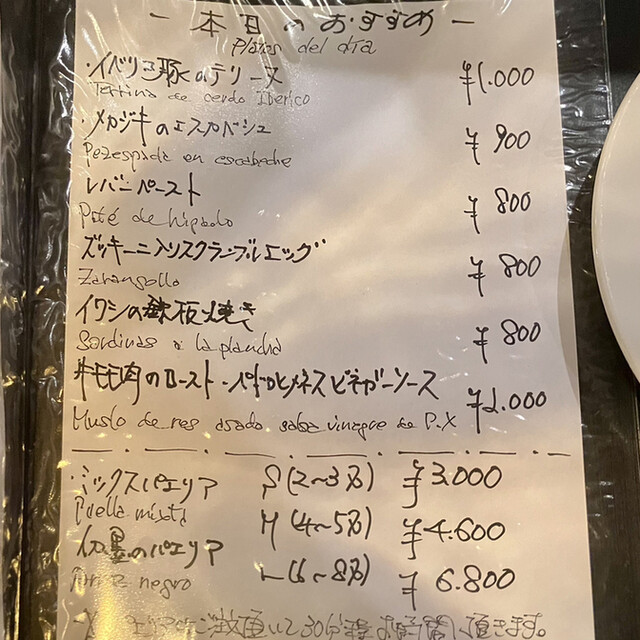 - 本日のおすすめ -
Platos del día
・イベリコ豚のテリーヌ ¥1.000
Terrina de cerdo Iberico
・メカジキのエスカベシュ ¥900
Pez espada en escabeche
レバーペースト ¥800
Paté de higado
ズッキーニ入りスクランブルエッグ ¥800
Zarangollo
イワシの鉄板焼き ¥800
Sardinas a la plancha
牛モモ肉のロースト・ペドロヒメネスビネガーソース
Muslo de res asado salsa vinagre de P.X
・ミックスパエリア S(2~3名) ¥3.000
Paella mixta M(4~5名) ¥4.600
イカ墨のパエリア L(6~8名) ¥6.800
negro
ご注文頂いて30分程お時間頂きます。